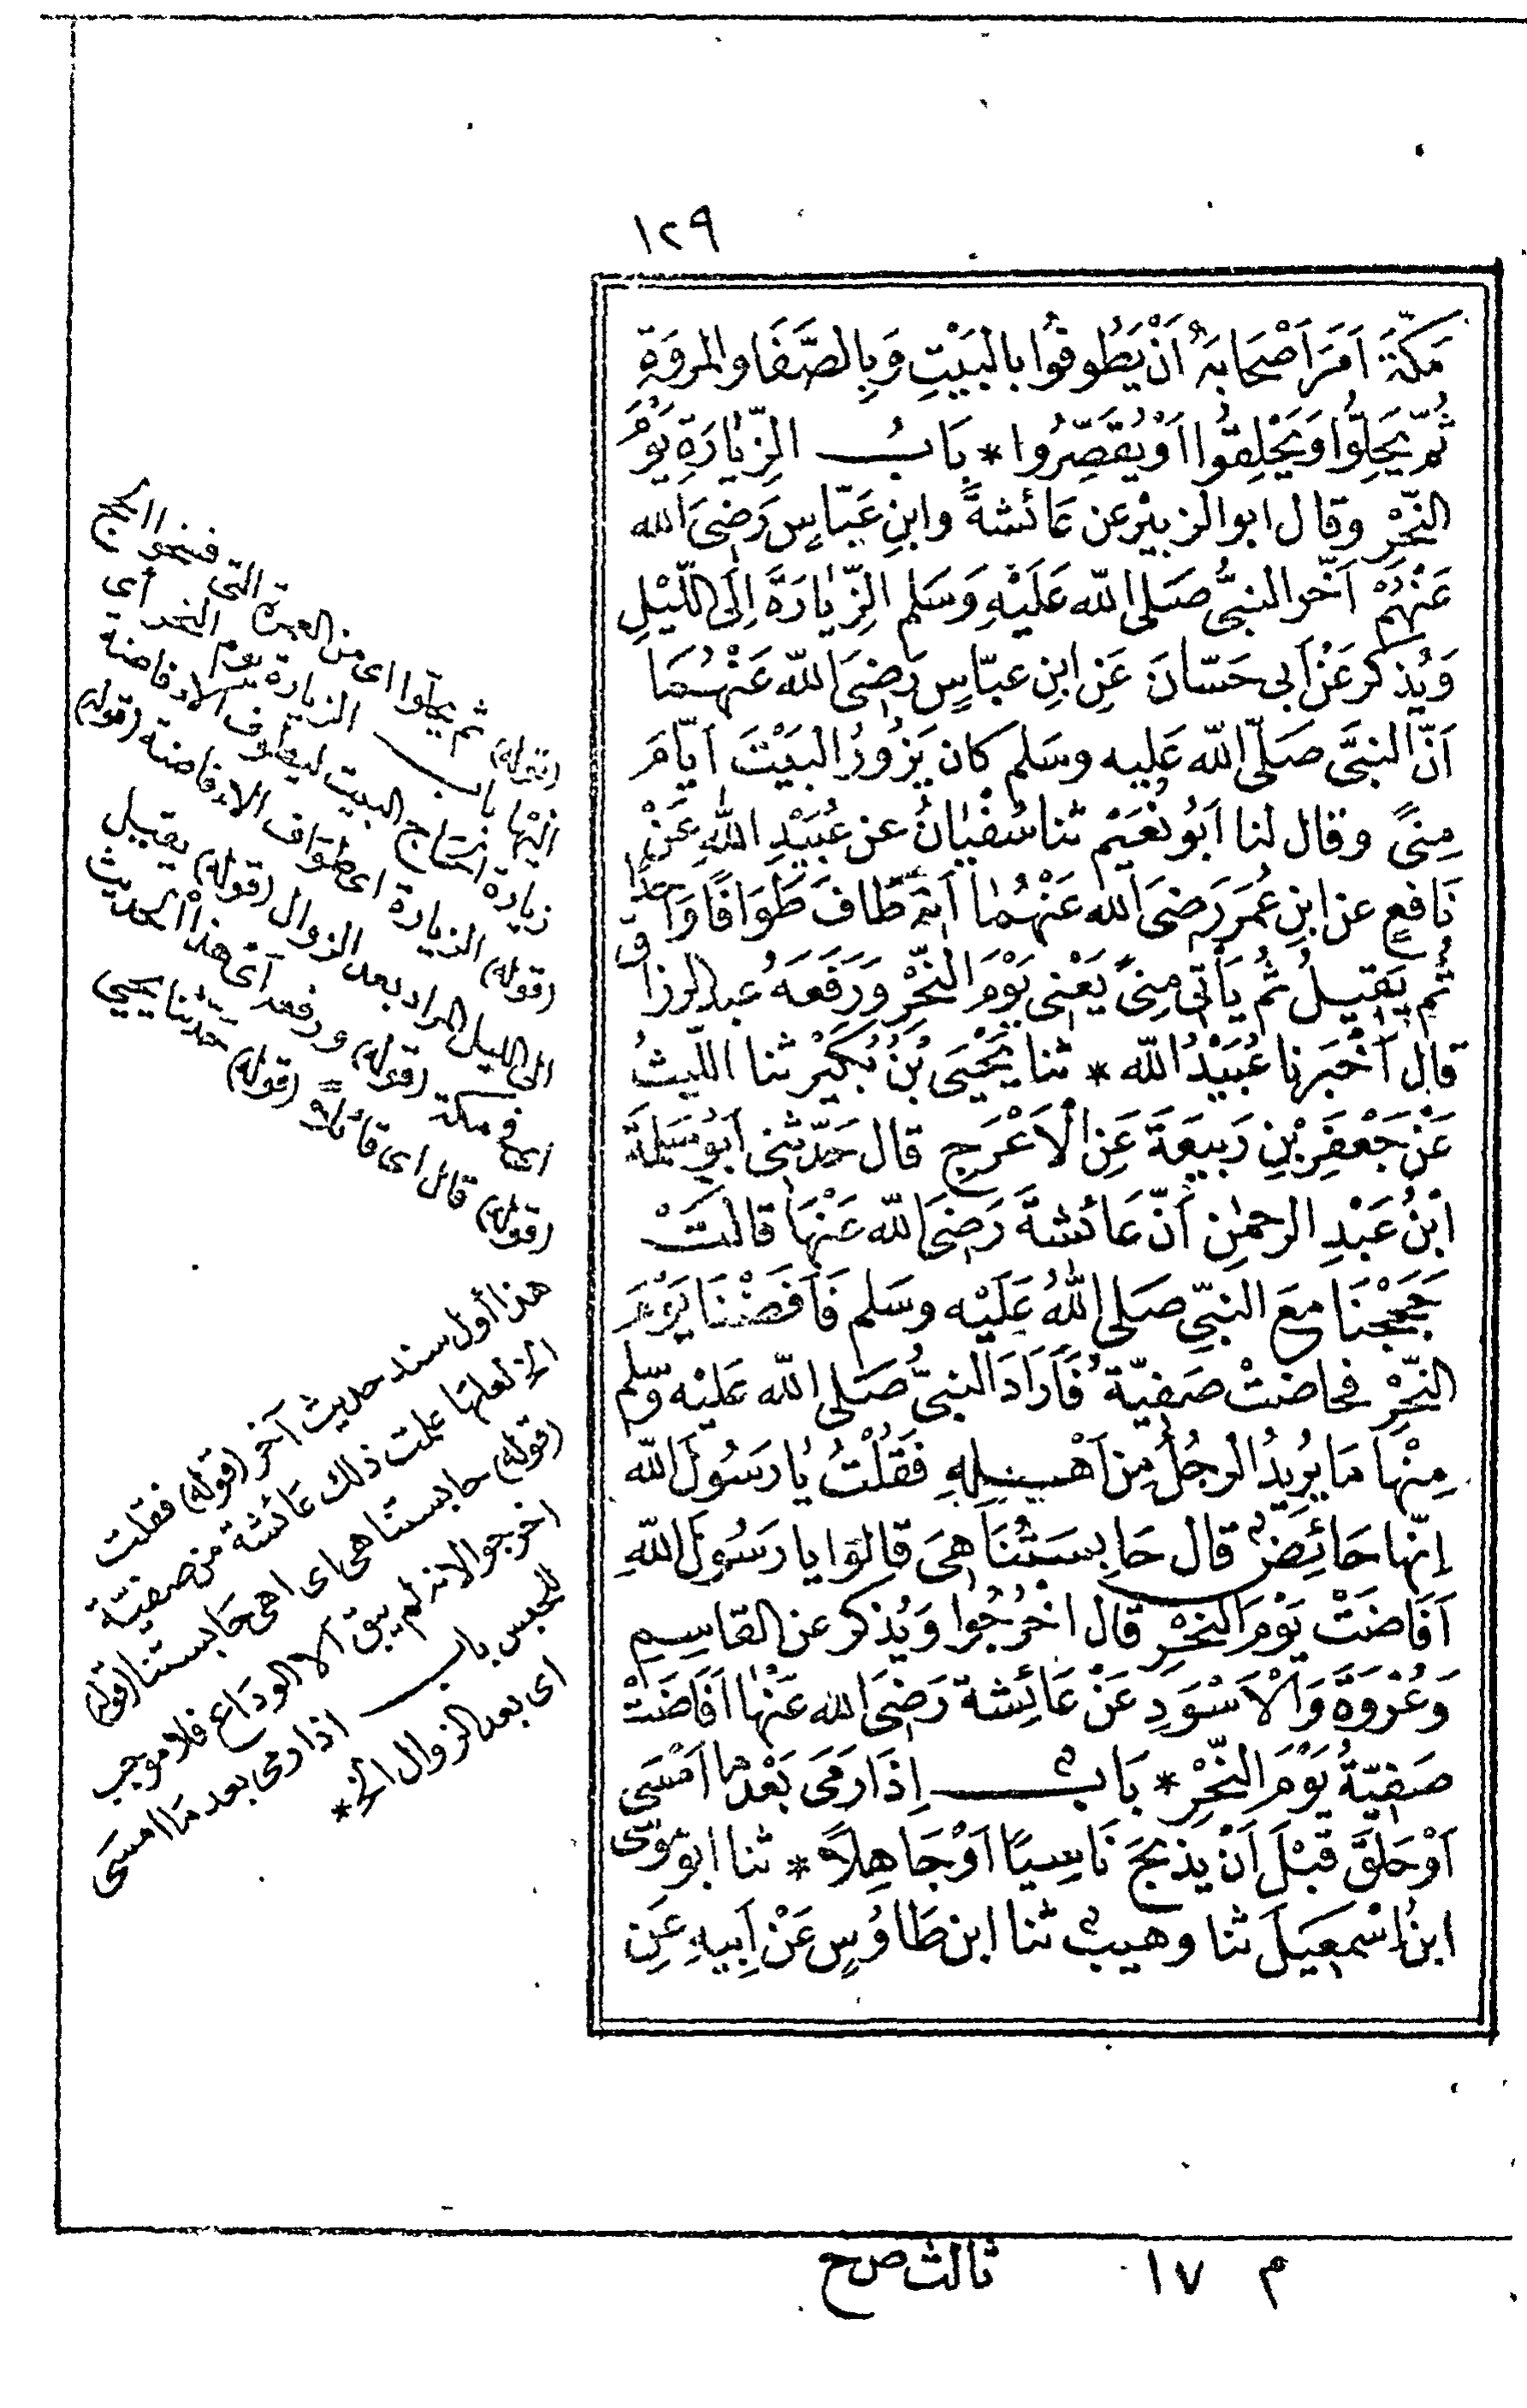 ١٢٩
مَكَّةَ اَمَرَ اَصْحَابَهُ اَنْ يَطُوفُوا بِالبَيْتِ وَبِالصَّفَا والمروَةِ
ثُمَّ يَحِلُّوا وَيَحْلِقُوا اَوْ يُقَصِّرُوا * بَابُ الزِّيَارَةِ يَوْمَ
النَّحْرِ وقال ابو الزبيْر عن عَائشةَ وابنِ عَبّاسٍ رَضِىَ الله
عَنْهُمْ اَخّر النبىُّ صَلى الله عَلَيْهِ وَسَلم الزِّيَارَةَ اِلَى اللَّيْلِ
وَيُذكر عَنْ اَبى حَسّانَ عَنِ ابنِ عبّاسٍ رَضِىَ الله عَنْهُمَا
اَنّ النبىَّ صَلّى الله عَليه وسَلم كان يَزُورُ البَيْتَ اَيّامَ
مِنىً وقال لنا اَبُو نُعَيْم ثنا سُفْيَانُ عن عُبَيْدِ اللهِ عَنْ
نَافعٍ عن ابنِ عُمَرَ رَضِىَ الله عَنْهُمَا اَنهُ طَافَ طَوَافًا وَاحدًا
ثم يَقيلُ ثُم يَأتى مِنىً يَعْنى يَوْمَ النّحْرِ وَرَفَعَهُ عبد الرزاق
قال اَخْبَرنا عُبَيْدُ الله * ثنا يَحْيَى بْنُ بُكَيْر ثنا اللّيثُ
عَنْ جَعْفَرِ بْنِ رَبيعَةَ عَنِ الْاَعْرَجِ قال حَدّثنى اَبُو سَلَمَةَ
ابْنُ عَبْدِ الرحمٰنِ اَنّ عَائشةَ رَضِىَ الله عَنْهَا قالَتْ
حَجَجْنَا مَعَ النبىِّ صَلى اللهُ عَلَيْه وسَلم فَاَفَضْنَا يَوْمَ
النّحْرِ فحاضتْ صَفيّةُ فَاَرَادَ النبىُّ صَلى الله عَليْه وسّلم
مِنْهَا مَا يُرِيدُ الرجُلُ مِن اَهْلِهِ فَقُلْتُ يَا رَسُولَ الله
اِنّها حَائِضٌ قال حَابِسَتُنَا هِىَ قالوَا يا رَسُولَ اللهِ
اَفَاضَتْ يَوْمَ النحْرِ قال اخْرُجُوا وَيُذكر عن القاسِمِ
وَعُرْوَةَ وَالْاَسْوَدِ عَنْ عَائِشةَ رَضِىَ الله عَنْهَا اَفَاضَتْ
صَفِيّةُ يَوْمَ النّحْرِ * بَابٌ اِذَا رَمَى بَعْدَ مَا اَمْسَى
اَوْ حَلَقَ قَبْلَ اَنْ يذبَحَ نَاسِيًا اَوْ جَاهِلًا * ثنا ابو موسَى
ابنُ اِسْمٰعِيلَ ثنا وهيبٌ ثنا ابن طَاوُسٍ عَنْ اَبِيهِ عَنِ
(قوله) ثم يحلوا اى من العمرة التى فسخوا الحج
اليها باب الزيارة يوم النحر أى
زيارة الحاج البيت ليطوف للافاضة
(قوله) الزيارة اى طواف الافاضة (قوله)
الى الليل المراد بعد الزوال (قوله) يقيل
اى فى مكة (قوله) ورفعه أى هذا الحديث
(قوله) قال اى قائلاً (قوله) حدّثنا يحيى
هذا أول سند حديث آخر (قوله) فقلت
الخ لعلها علمت ذلك عائشة من صفيّة
(قوله) حابستنا هى اى اهى حابستنا (قوله)
اخرجوا لانه لم يبق الا الوداع فلا موجب
للحبس باب اذا رمى بعد ما امسَى
اى بعد الزوال الخ *
م ١٧ ثالث ص ح